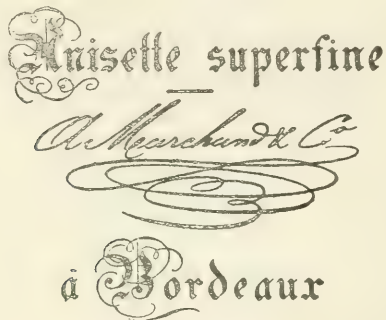 Anisette superfine
A Marchand & Co
à Bordeaux